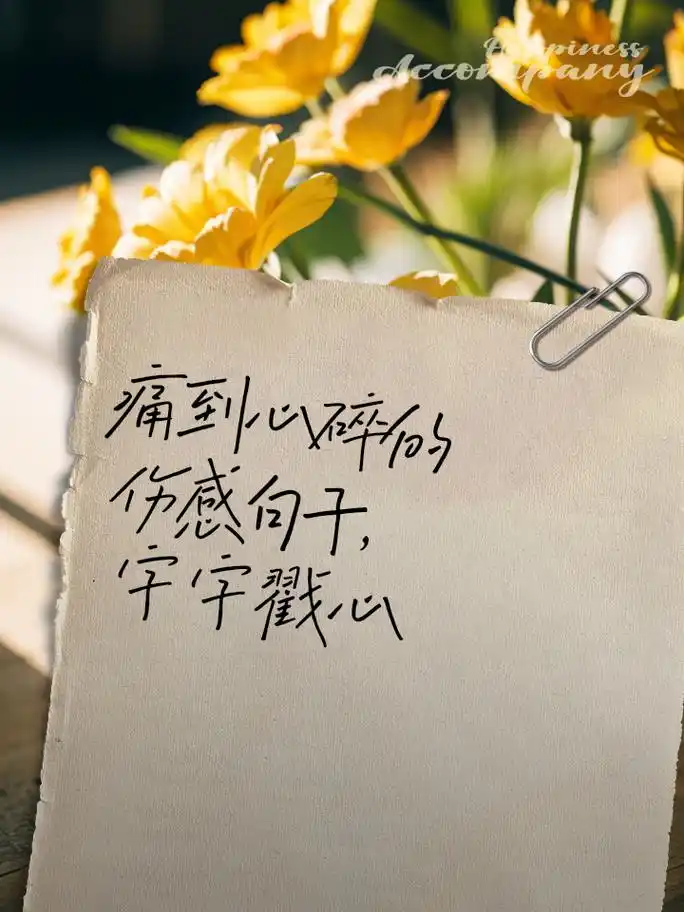 Happiness
Accompany
痛到心碎的
伤感句子,
字字戳心